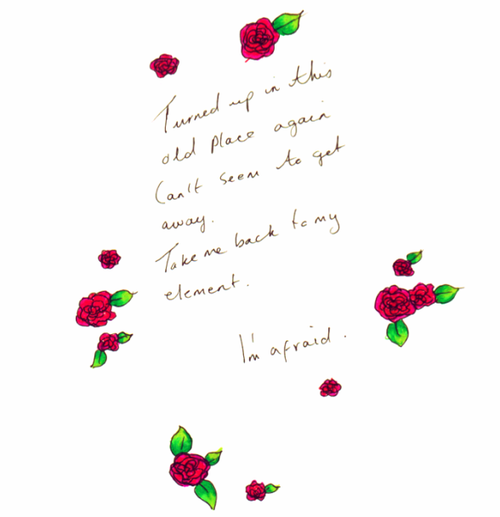 Turned up in this
old place again
Can't seem to get
away.
Take me back to my
element.
I'm afraid.